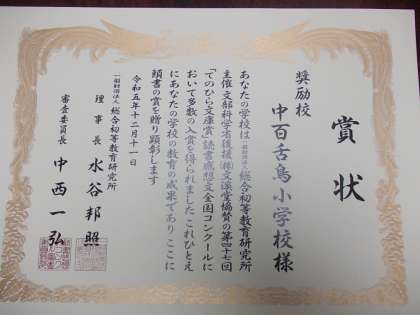 賞状
奨励校
中百舌鳥小学校様
あなたの学校は一般財団法人総合初等教育研究所
主催文部科学省後援(株)文溪堂協賛の第四十七回
「てのひら文庫賞」読書感想文全国コンクールに
おいて多数の入賞を得られましたこれひとえ
にあなたの学校の教育の成果でありここに
頭書の賞を贈り顕彰します
令和五年十二月十一日
一般財団法人総合初等教育研究所
理事長水谷邦照
審査委員長中西一弘